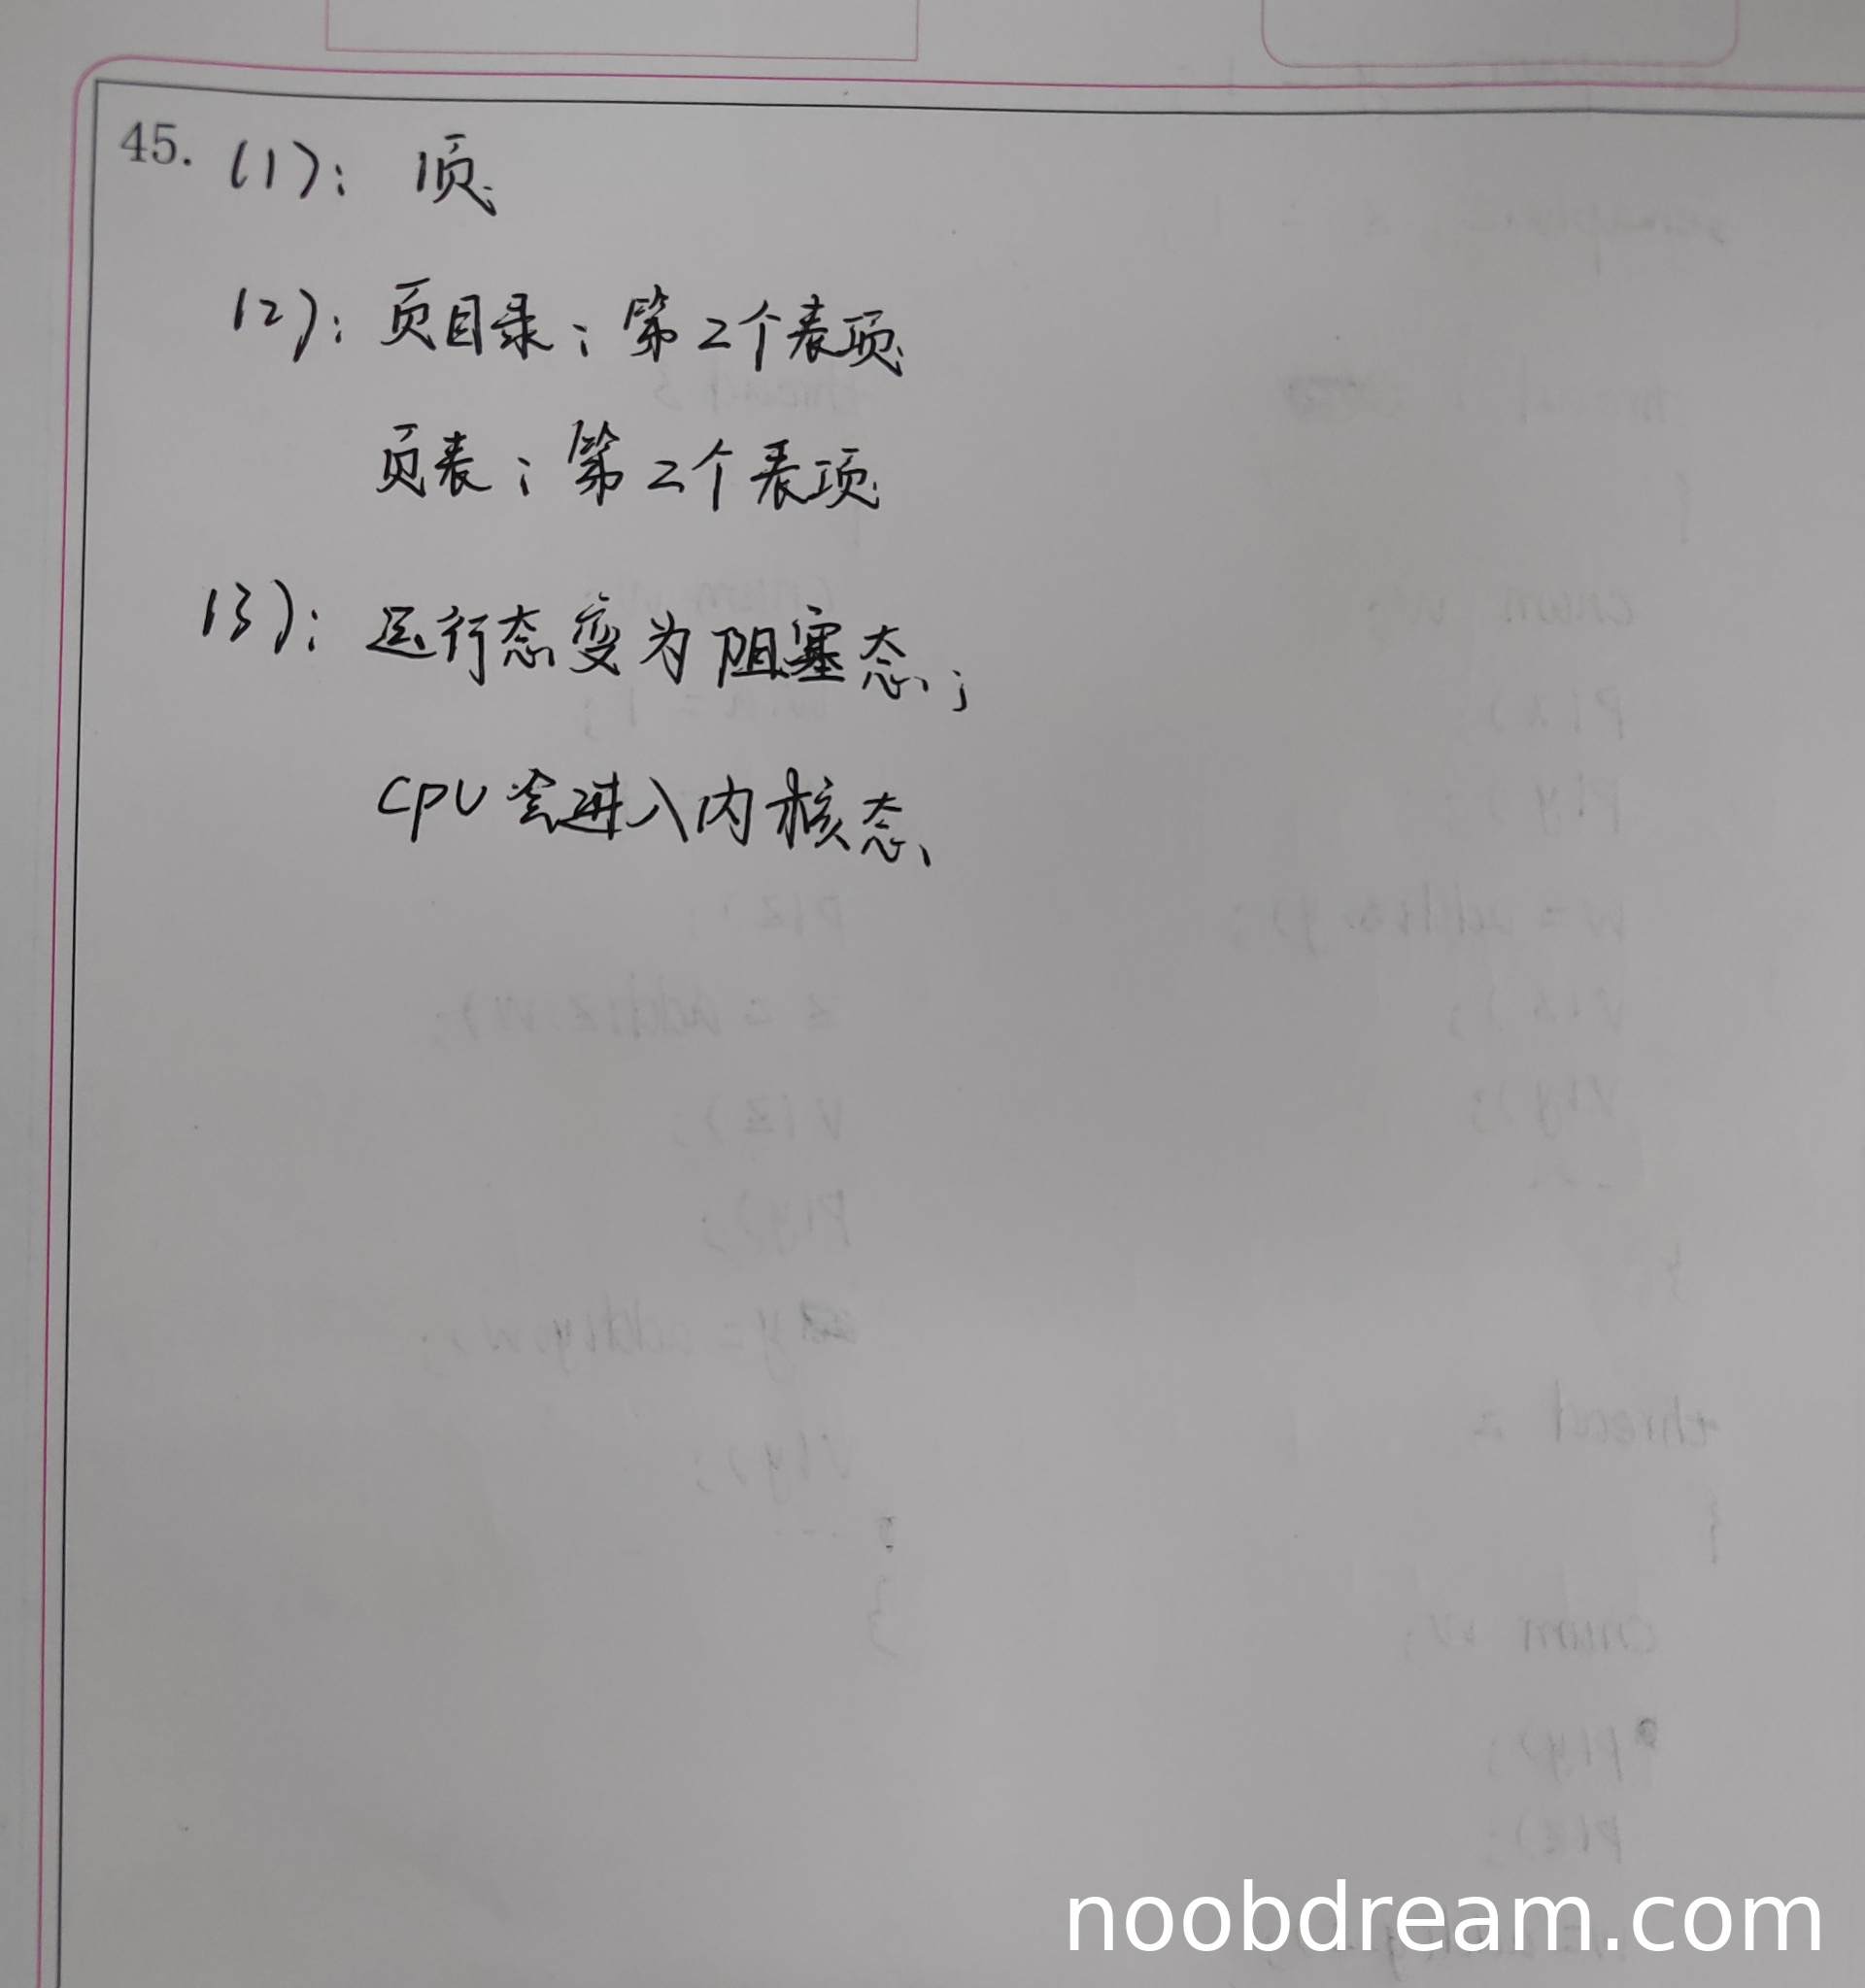 45. (1): 1页
(2): 页目录: 第2个表项
页表: 第2个表项
(3): 运行态变为阻塞态;
CPU会进入内核态
noobdream.com